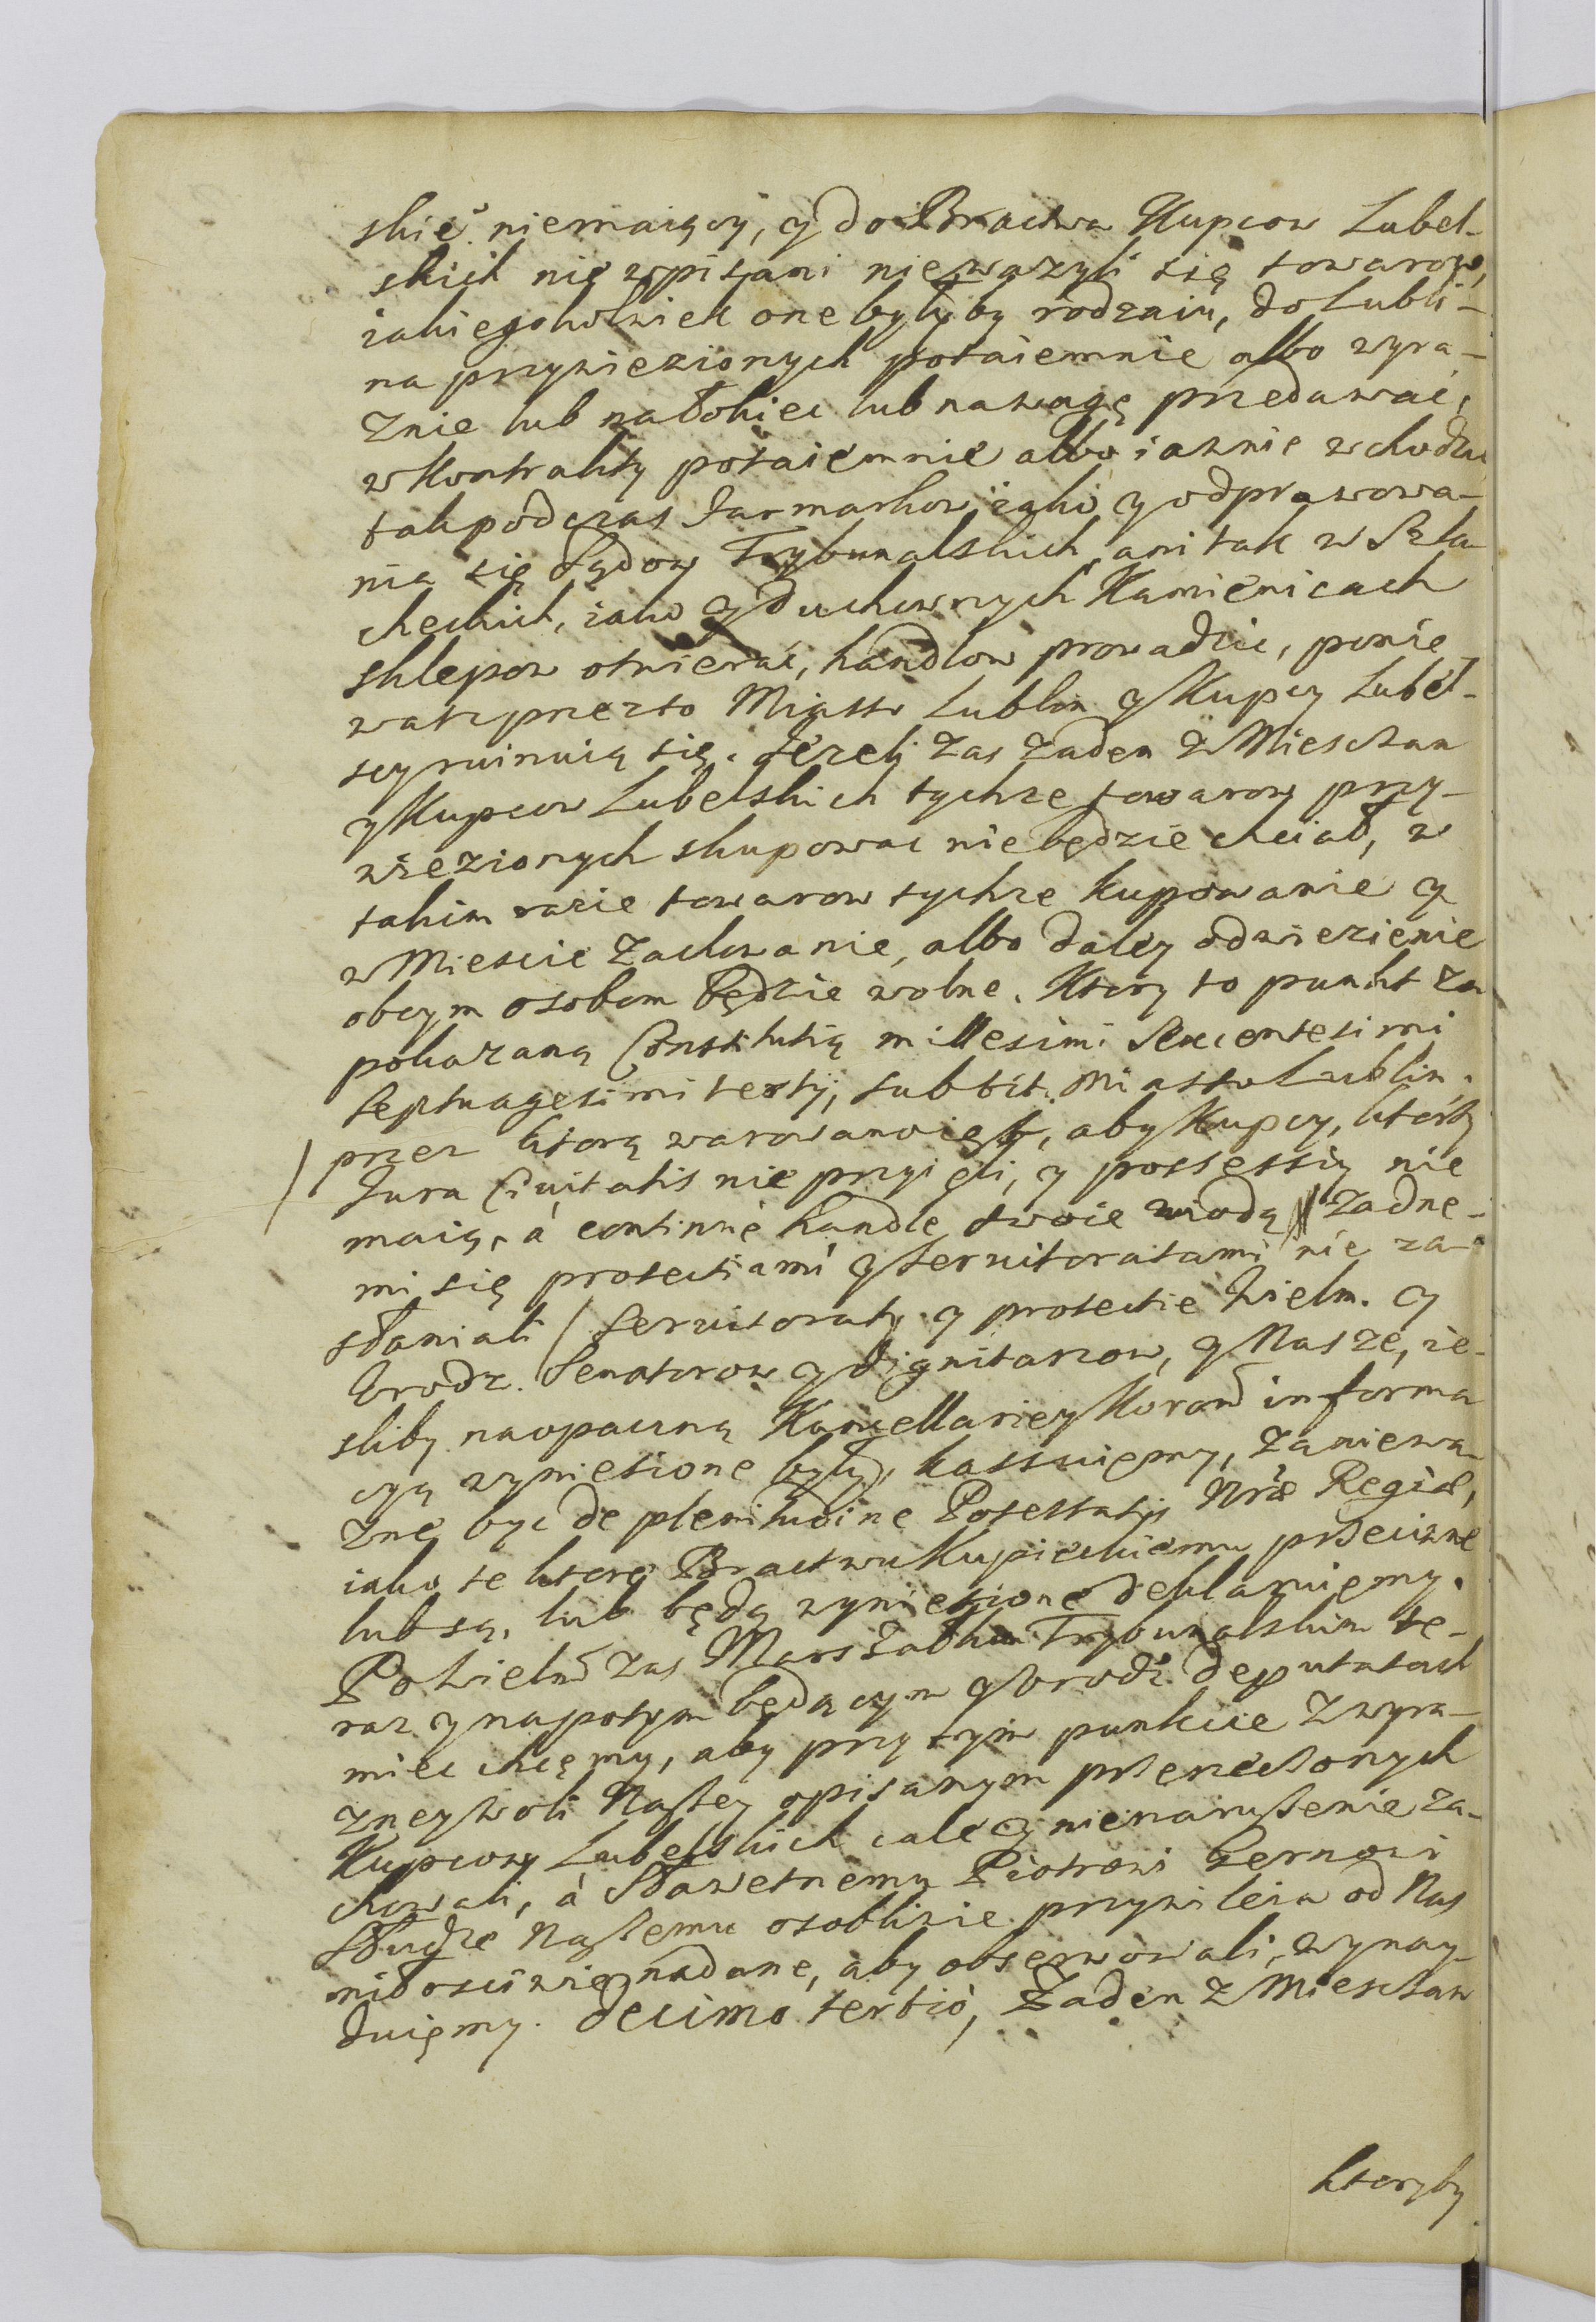 skie niemaiący, y do Bractwa Kupcow Lubel-
skich nie wpisani nieważyli się towarow,
iakiegokolwiek one byłyby rodzaiu, do Lubli-
na przywiezionych potaiemnie albo wyra-
znie lub nałokiec lub nawagę przedawac,
w Kontrakty potaiemnie albo iawnie wchodzic
tak podczas Jarmarkow, iako y odprawowa-
nia się Sądow Trybunalskich, ani tak w Szla-
checkich, iako y duchownych Kamienicach
sklepow otwierać, handlow prowadzic, ponie-
waz przezto Miasto Lublin y Kupcy Lubel-
scy ruinuią się. Jezeli zas zaden z Miesczan
y Kupcow Lubelskich tychze towarow przy-
wiezionych skupowac niebędzie chciał, w
takim razie towarow tychze kupowanie y
w Miescie zachowanie, albo daley odwiezienie
obcym osobom będzie wolne. Ktory to punkt za
pokazaną Constitutią millesimi Sexcentesimi
Septuagesimi tertij, sub tit. Miasto Lublin.
przez ktorą warowano iest, aby Kupcy, ktorzy
Jura Civitatis nie przyięli, y possessiy nie
maią, à continuè handle swoie wiodą żadne-
mi się protectiami y servitoratami nie za-
słaniali / Servitoraty y protectie Wielm. y
Urodz. Senatorow y Dignitarzow, y Nasze, ie-
sliby naopaczną Kancellariey Koron informa
cyą wyniesione były, kassuiemy, zaniewa-
zne byc de plenitudine Potestatis Nræ Regiæ,
iako te ktore Bractwu Kupieckiemu przeciwne
lub są, lub będą wyniesione deklaruiemy.
Po Wielm zas Marszałku Trybunalskim te-
raz y napotym będącym y Urodz. deputatach
miec chcemy, aby przy tym punkcie z wyra-
zney Woli Naszey opisanym przerzeczonych
Kupcow Lubelskich cale y nienaruszenie za-
chowali, à Sławetnemu Piotrowi Gernowi
Słudze Naszemu osobliwie przywileia od Nas
miłosciwie nadane, aby obserwowali, wynay-
duiemy. Decimo tertiò, Zaden z Miesczan
ktoryby